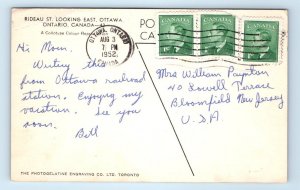 RIDEAU ST. LOOKING EAST, OTTAWA
ONTARIO, CANADA
A Colorchrome Colour
PO
CA
OTTAWA, ONTARIO
AUG 3
7 PM
1952
CANADA
CANADA
CANADA
Hi Mom.
Writing this
from Ottawa railroad
station. Enjoying my
vacation. See you
soon.
Bill
Mrs William Paynton
40 Lowell Terrace
Bloomfield New Jersey
U.S.A
THE PHOTOGELATINE ENGRAVING CO. LTD. TORONTO